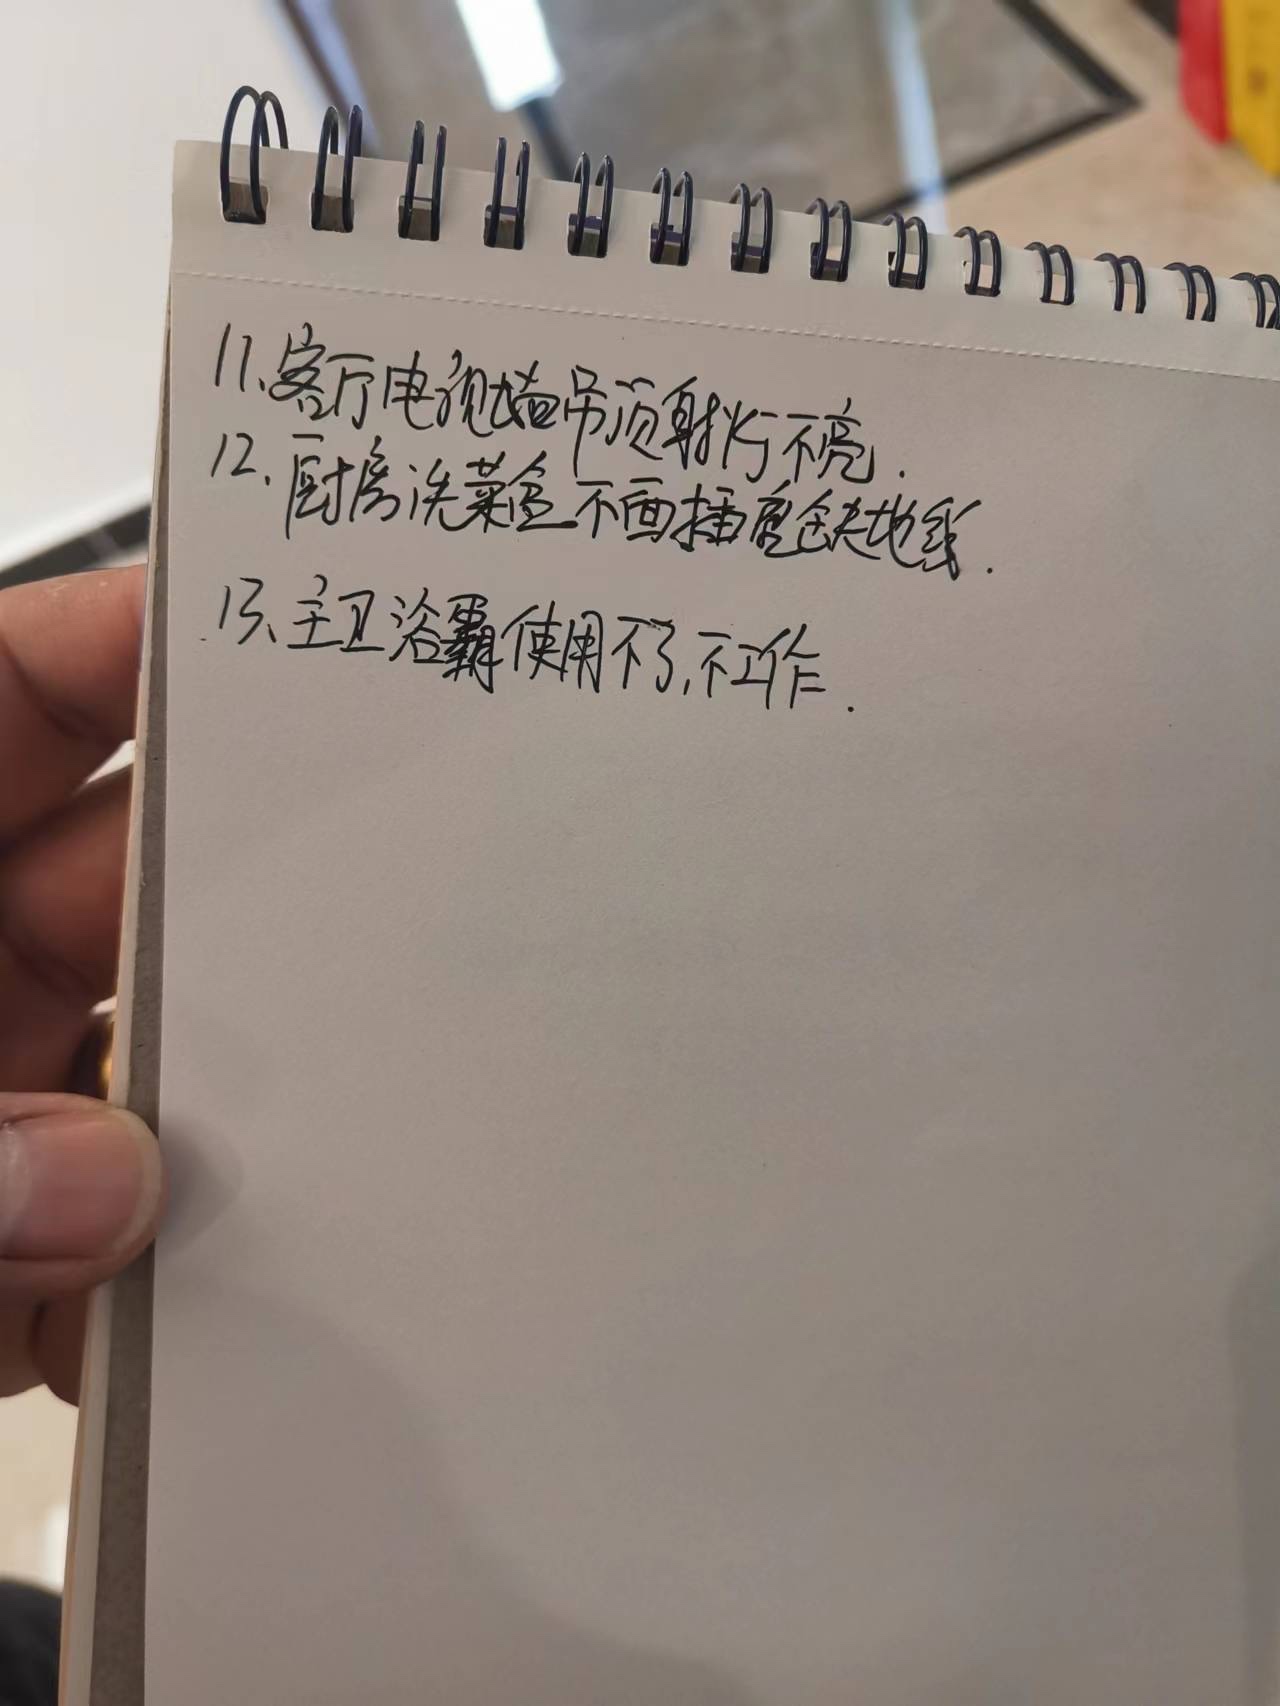 11、客厅电视墙吊顶射灯不亮.
12、厨房洗菜盆下面插座缺地线.
13、主卫浴霸使用不了,不工作.